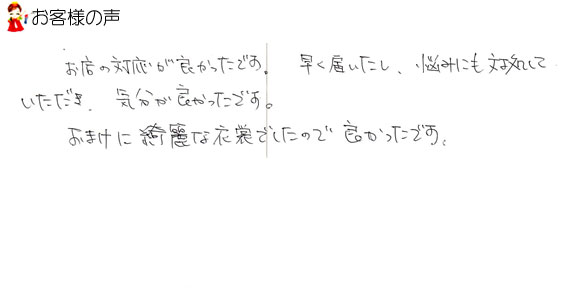 お客様の声
お店の対応が良かったです。 早く届いたし、悩みにも対処して
いただき、気分が良かったです。
おまけに綺麗な衣裳でしたので良かったです。